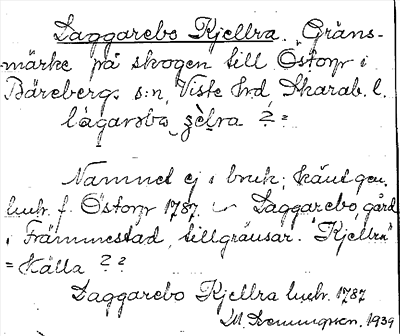 Laggarebo Kjellra. Gräns-
märke på skogen till Östorp i
Bärebergs s:n, Viste hrd, Skarab. l.
lágarəbo, ɕèlra ? =
Namnet ej i bruk; känt gen.
lmhr. f. Östorp 1787. Laggarebo, gård
i Främmestad, tillgränsar. "Kjellra"
= Källa ? ?
Laggarebo Kjellra lmhr. 1787
1939